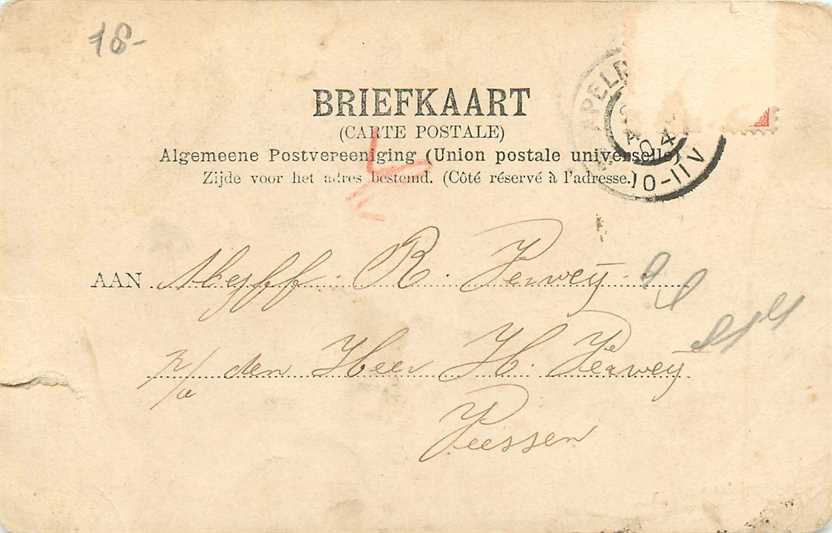 18-
BRIEFKAART
(CARTE POSTALE)
Algemeene Postvereeniging (Union postale universelle)
Zijde voor het adres bestemd. (Côté réservé à l'adresse.)
APELD
04
10-11V
AAN Mejff. R. Perwey
p/a den Heer H. Perwey
Veessen